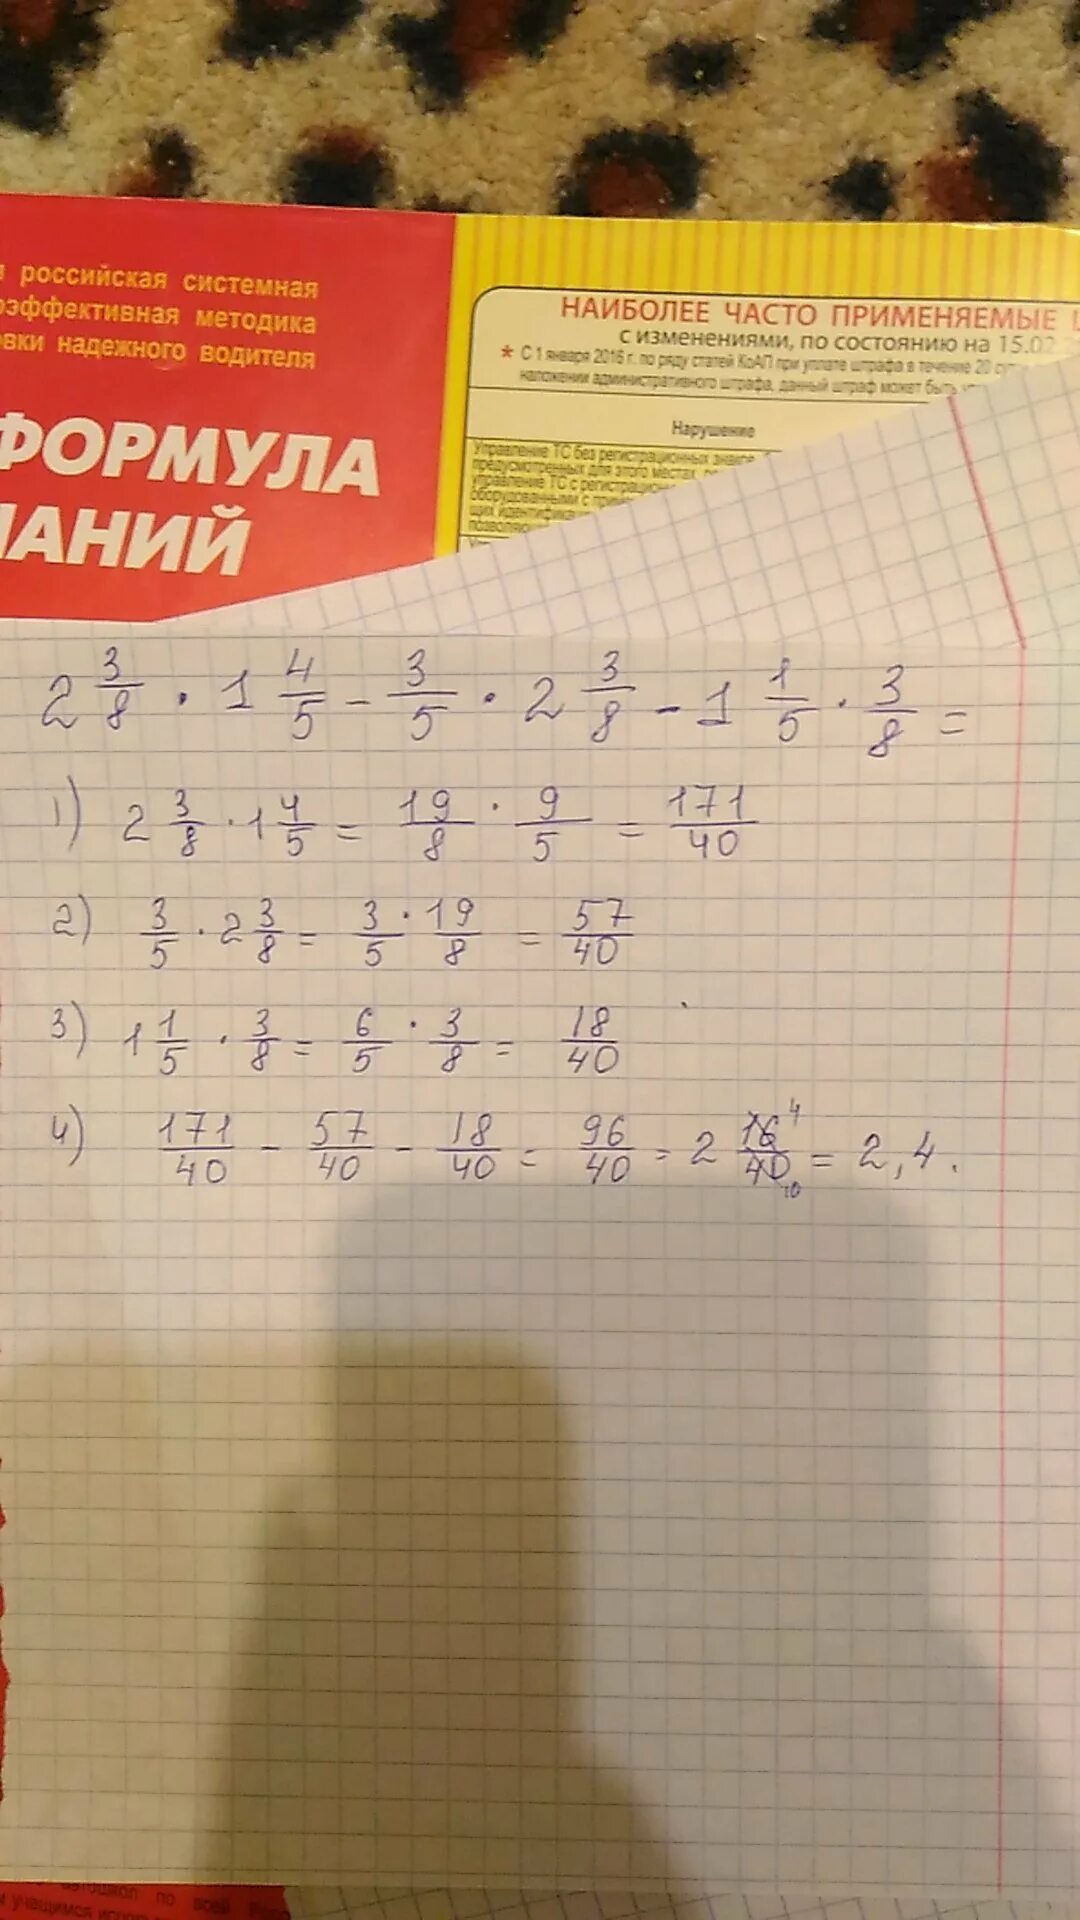 российская системная
эффективная методика
надежного водителя
ФОРМУЛА
НАИБОЛЕЕ ЧАСТО ПРИМЕНЯЕМЫЕ
с изменениями, по состоянию на 15.02
* С 1 января 2016 г. по ряду статей КоАП при уплате штрафа в течение 20
наложении административного штрафа, данный штраф может быть
Нарушение
Управление ТС без регистрационных знаков
предусмотренных для этого местах
управление ТС с
оборудованными с
2 3/8 · 1 4/5 - 3/5 · 2 3/8 - 1 1/5 · 3/8 =
1) 2 3/8 · 1 4/5 = 19/8 · 9/5 = 171/40
2) 3/5 · 2 3/8 = 3/5 · 19/8 = 57/40
3) 1 1/5 · 3/8 = 6/5 · 3/8 = 18/40
4) 171/40 - 57/40 - 18/40 = 96/40 = 2 16/40 4/10 = 2,4.
по всей
учащимся